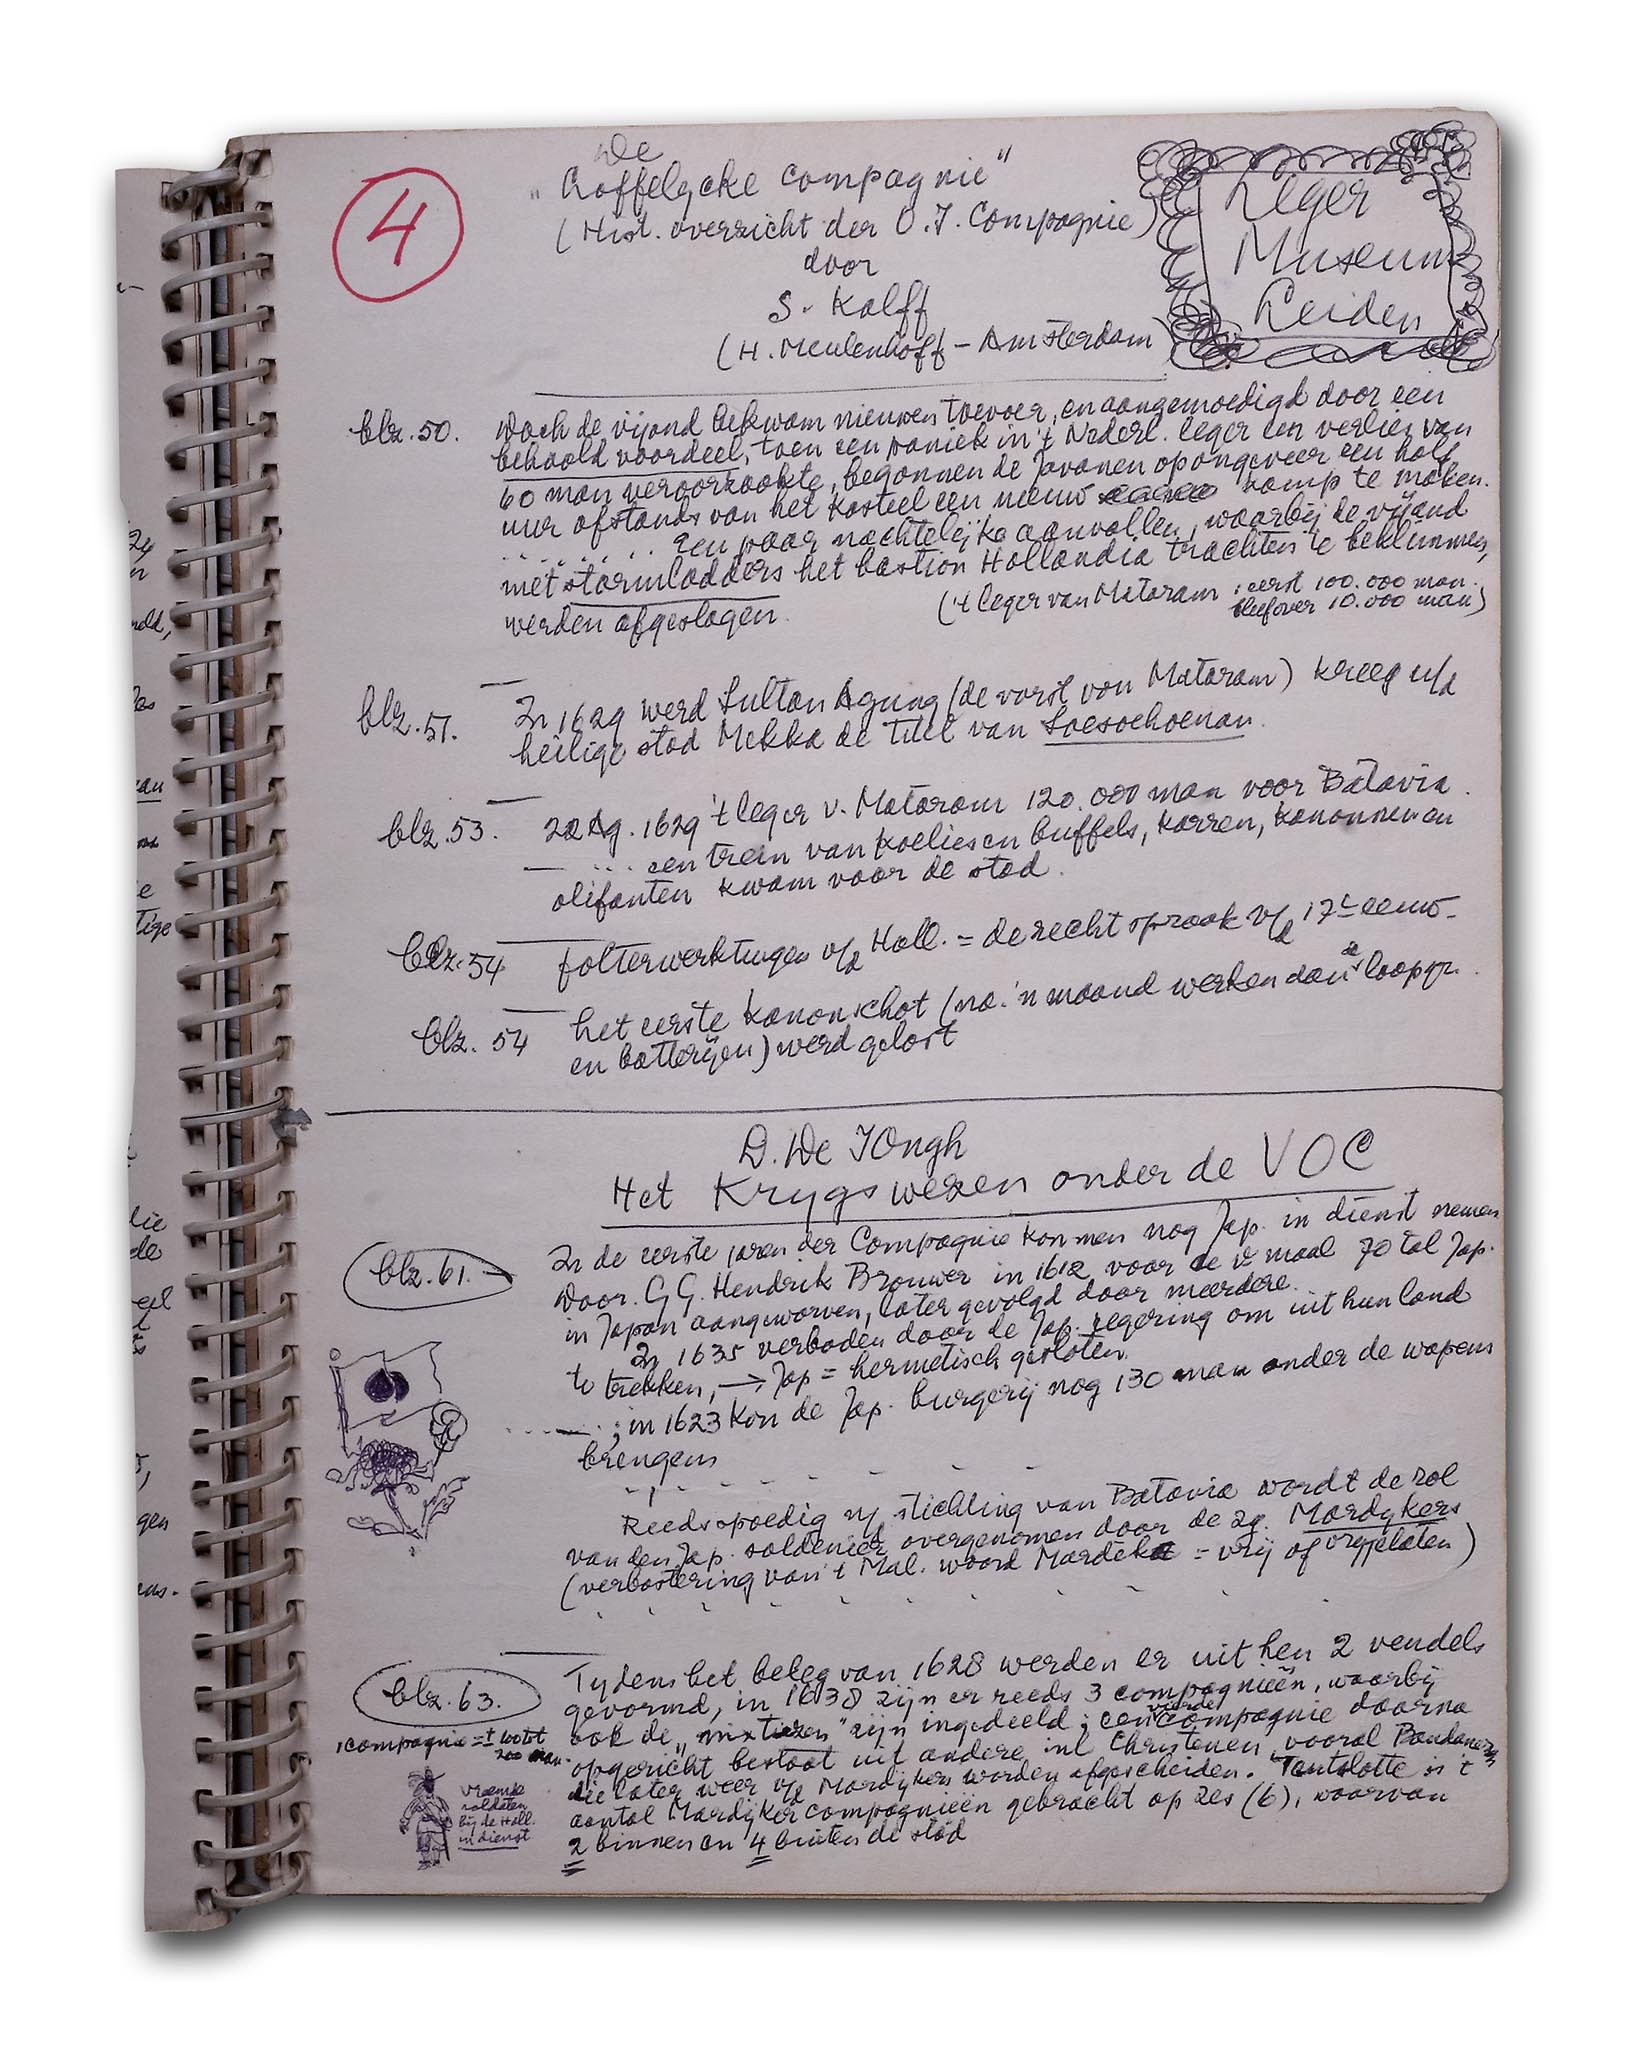 4
De
„Loffelycke Compagnie"
(Hist. overzicht der O.I. Compagnie)
door
S. Kalff
(H. Meulenhoff – Amsterdam
Leger
Museum
Leiden
blz. 50. Doch de vijand bekwam nieuwen toevoer, en aangemoedigd door een
behaald voordeel, toen een paniek in 't Nederl. leger een verlies van
60 man veroorzaakte, begonnen de Javanen op ongeveer een half
uur afstands van het kasteel een nieuw kamp te maken.
......... Een paar nachtelijke aanvallen, waarbij de vijand
met stormladders het bastion Hollandia trachten te beklimmen,
werden afgeslagen. ('t leger van Mataram: eerst 100.000 man.
bleef over 10.000 man)
blz. 51. In 1629 werd Sultan Agung (de vorst van Mataram) kreeg u/d
heilige stad Mekka de titel van Soesoehoenan.
blz. 53. 22 Ag. 1629 't leger v. Mataram 120.000 man voor Batavia.
— ... een trein van koelies en buffels, karren, kanonnen en
olifanten kwam voor de stad.
blz. 54 folterwerktuigen v/d Holl. = de rechtspraak v/d 17e eeuw –
blz. 54 het eerste kanonschot (na 'n maand werken aan de loopgr.
en batterijen) werd gelost
D. De IOngh
Het Krygswezen onder de VOC
blz. 61. – In de eerste jaren der Compagnie kon men nog Jap. in dienst nemen
Door G.G. Hendrik Brouwer in 1612 voor de 1e maal 70 tal Jap.
in Japan aangeworven, later gevolgd door meerdere.
In 1635 verboden door de Jap. regering om uit hun land
te trekken, → Jap = hermetisch gesloten.
..... ; in 1623 kon de Jap. burgerij nog 130 man onder de wapens
brengen
Reeds spoedig n/ stichting van Batavia wordt de rol
van den Jap. soldenier overgenomen door de zg. Mardykers
(verbastering van 't Mal. woord Mardeka = vrij of vrygelaten)
blz. 63. Tydens het beleg van 1628 werden er uit hen 2 vendels
gevormd, in 1638 zijn er reeds 3 compagnieën, waarbij
ook de „mixtiezen" zijn ingedeeld; een vierde compagnie daarna
opgericht bestaat uit andere inl Christenen, vooral Bandanezen
die later weer v/d Mardijkers worden afgescheiden. Tentslotte is 't
aantal Mardijker compagnieën gebracht op zes (6), waarvan
2 binnen en 4 buiten de stad
1 compagnie = ± 100 tot
200 man.
vreemde
soldaten
bij de Holl.
in dienst